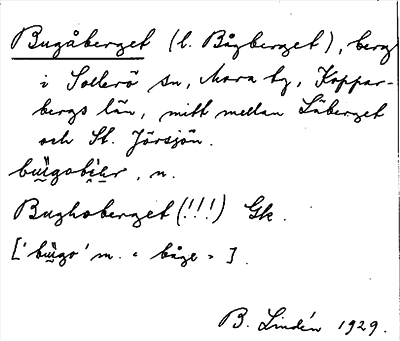 Bugåberget (l. Bågberget), berg
i Sollerö sn, Mora tg, Koppar-
bergs län, mitt mellan Låberget
och St. Jörsjön.
n.
Bughoberget (!!!) Gk.
m. « båge » ].
B. Lindén 1929.